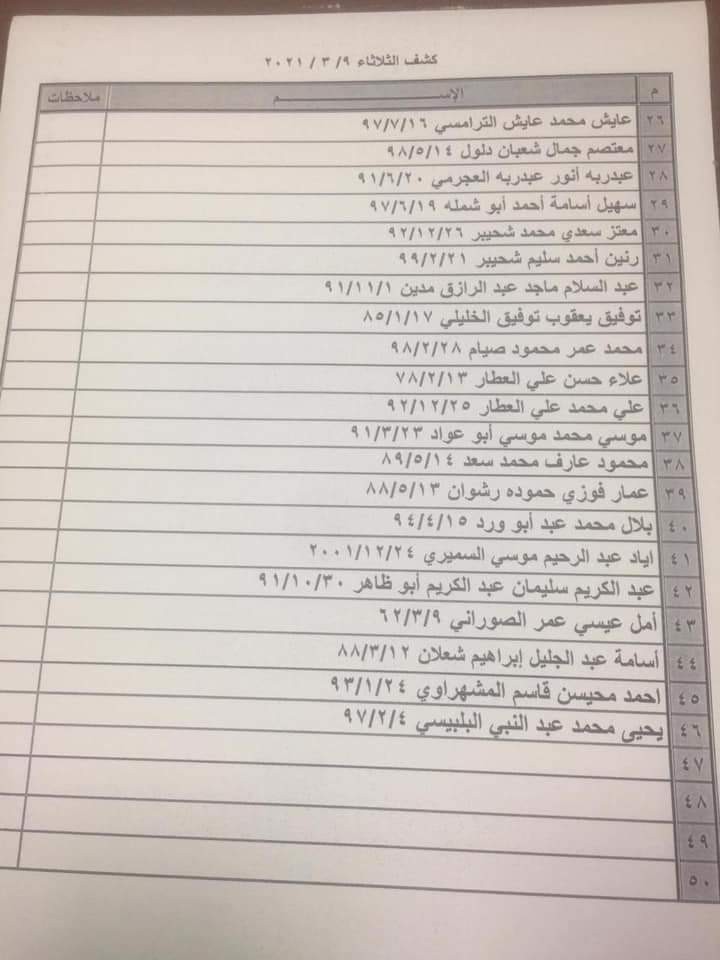 كشف الثلاثاء ٩/ ٣ / ٢٠٢١
م الإســـــــــــم ملاحظات
٢٦ عايش محمد عايش الترامسي ٩٧/٧/١٦
٢٧ معتصم جمال شعبان دلول ٩٨/٥/١٤
٢٨ عبدربه أنور عبدربه العجرمي ٩١/٦/٢٠
٢٩ سهيل أسامة أحمد أبو شمله ٩٧/٦/١٩
٣٠ معتز سعدي محمد شحيبر ٩٢/١٢/٢٦
٣١ رنين أحمد سليم شحيبر ٩٩/٢/٢١
٣٢ عبد السلام ماجد عبد الرازق مدين ٩١/١١/١
٣٣ توفيق يعقوب توفيق الخليلي ٨٥/١/١٧
٣٤ محمد عمر محمود صيام ٩٨/٢/٢٨
٣٥ علاء حسن علي العطار ٧٨/٢/١٣
٣٦ علي محمد علي العطار ٩٢/١٢/٢٥
٣٧ موسي محمد موسي أبو عواد ٩١/٣/٢٣
٣٨ محمود عارف محمد سعد ٨٩/٥/١٤
٣٩ عمار فوزي حموده رشوان ٨٨/٥/١٣
٤٠ بلال محمد عبد أبو ورد ٩٤/٤/١٥
٤١ اياد عبد الرحيم موسي السميري ٢٠٠١/١٢/٢٤
٤٢ عبد الكريم سليمان عبد الكريم أبو ظاهر ٩١/١٠/٣٠
٤٣ أمل عيسي عمر الصوراني ٦٢/٣/٩
٤٤ أسامة عبد الجليل إبراهيم شعلان ٨٨/٣/١٢
٤٥ احمد محيسن قاسم المشهراوي ٩٣/١/٢٤
٤٦ يحيى محمد عبد النبي البلبيسي ٩٧/٢/٤
٤٧
٤٨
٤٩
٥٠